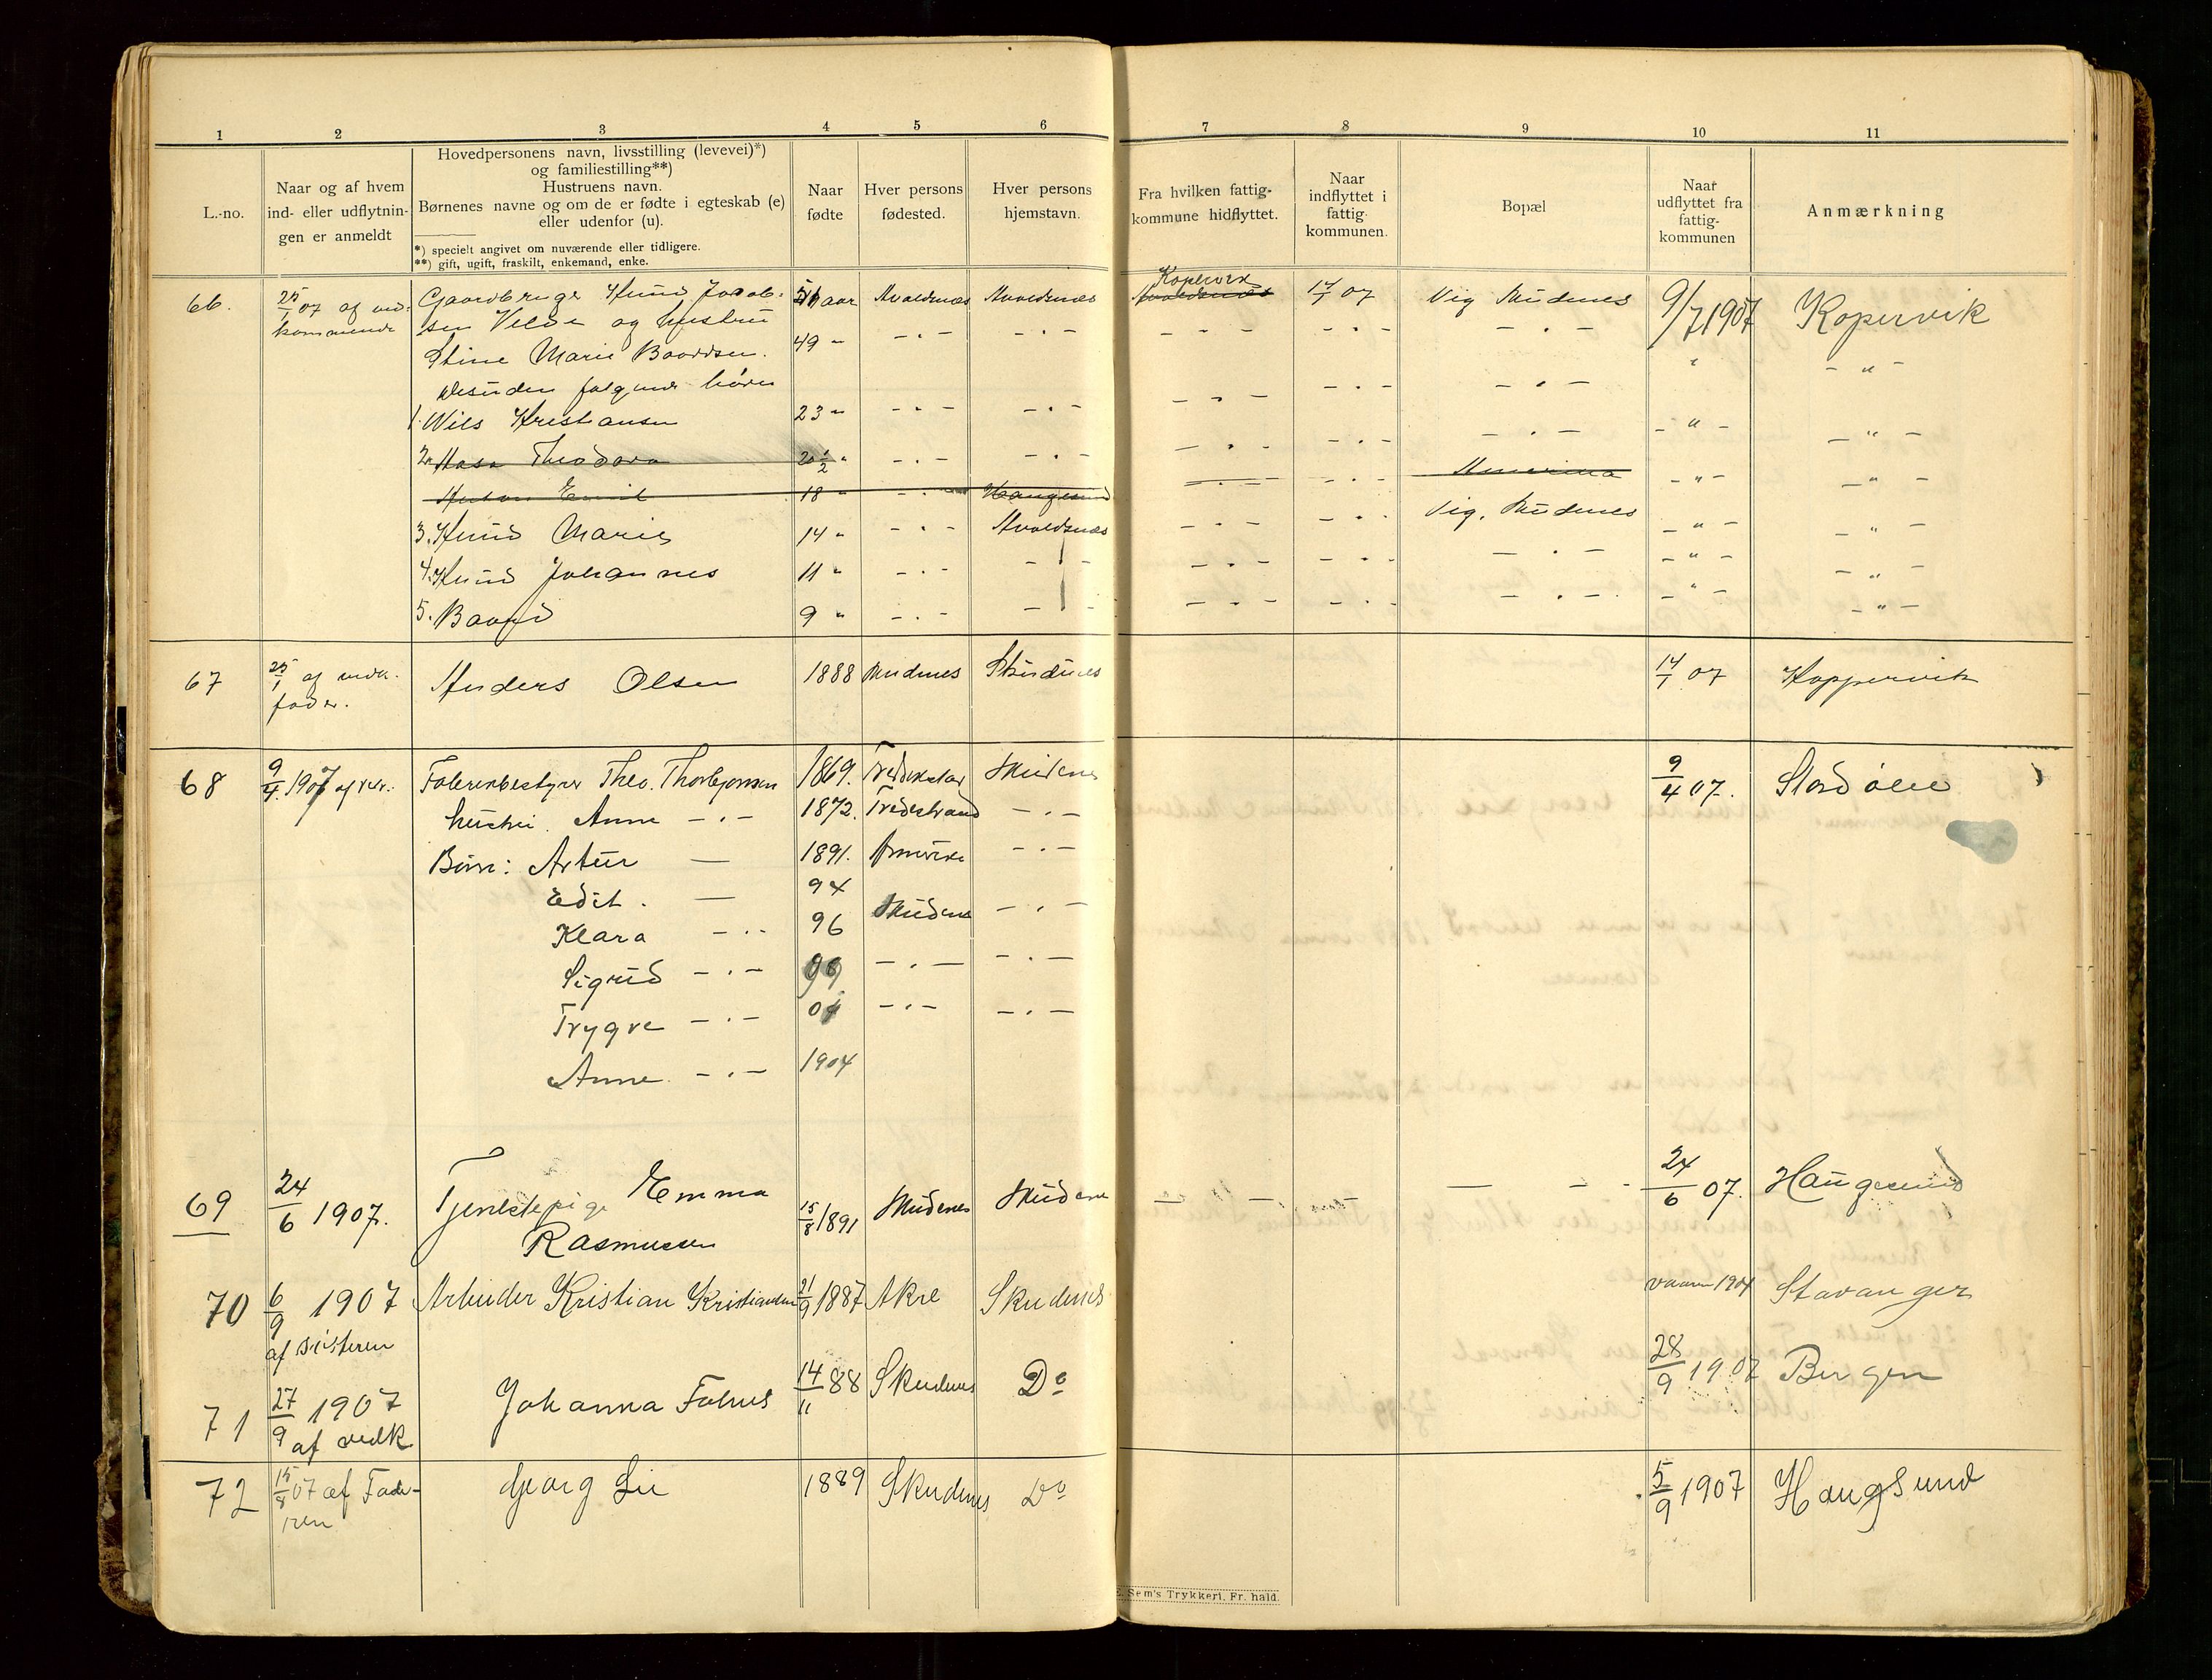 1 2 3 4 5 6 7 8 9 10 11
L.-no.
Naar og af hvem
ind- eller udflytnin-
gen er anmeldt
Hovedpersonens navn, livsstilling (levevei)*)
og familiestilling**)
Hustruens navn.
Børnenes navne og om de er fødte i egteskab (e)
eller udenfor (u).
*) specielt angivet om nuværende eller tidligere.
**) gift, ugift, fraskilt, enkemand, enke.
Naar
fødte
Hver persons
fødested.
Hver persons
hjemstavn.
Fra hvilken fattig-
kommune hidflyttet.
Naar
indflyttet i
fattig
kommunen.
Bopæl
Naar
udflyttet fra
fattig-
kommunen
Anmærkning
Kopervik
66. 25/1 07 af ved- Gaardbruger Knud Jacob- 51 aar Avaldsnæs Avaldsnæs Avaldsnæs 14/1 07 Vig Skudenes 9/7 1907 Kopervik
kommende sen Velde og hustru
Stine Marie Baardsen. 49 " - " - - " - - - - - " - - " - " - " -
desuden følgende børn
1. Nils Kristiansen 23 " - " - - " - - " - - " - - " - - " - - " -
2. Theodora 20 1/2 " - " - - " - - " - - " - - " -
Anton Emil 18 " - " - Haugesund - " - - " - Amerika - " - - " -
3. Knud Marie 14 " - " - Avaldsnæs - " - - " - Vig, Skudenes - " - - " -
4. Knud Johannes 11 " - " - - " - - " - - " - - " - - " -
5. Baard 9 " - " - - " - - " - - " - - " - - " -
67 25/1 af vedk. Anders Olsen 1888 Skudenes Skudenes 14/1 07 Koppervik
fader.
68 9/4 1907 af ved. Theo. Thorbjørnsen 1869. Skudenes 9/4 07.
hustru. Anne - " - 1872. Tvedestrand - " -
Børn: Artur — 1891. Amerika - " -
Edit. — 94
Klara - " - 96 Skudenes - " -
Sigrud - " - 99 - " - - " -
Trygve - " - 01 - " - - " -
Anne - " - 1904
69 24/6 1907. Tjenestepige Emma 15/8 1891 Skudenes Skudenes — — — — - - 24/6 07. Haugesund
Rasmussen
70 6/9 1907 Arbeider Kristian Kristiansen 21/9 1887 Akre Skudenes vaaren 1904 Stavanger
af søsteren
71 27/9 1907 Johanna Falnes 14/11 88 Skudenes Do 28/9 1907 Bergen
af vedk
72 15/8 07 af Fade- Georg Lie 1889 Skudenes Do 5/9 1907 Haugsund
ren
Sem's Trykkeri, Fr. hald.